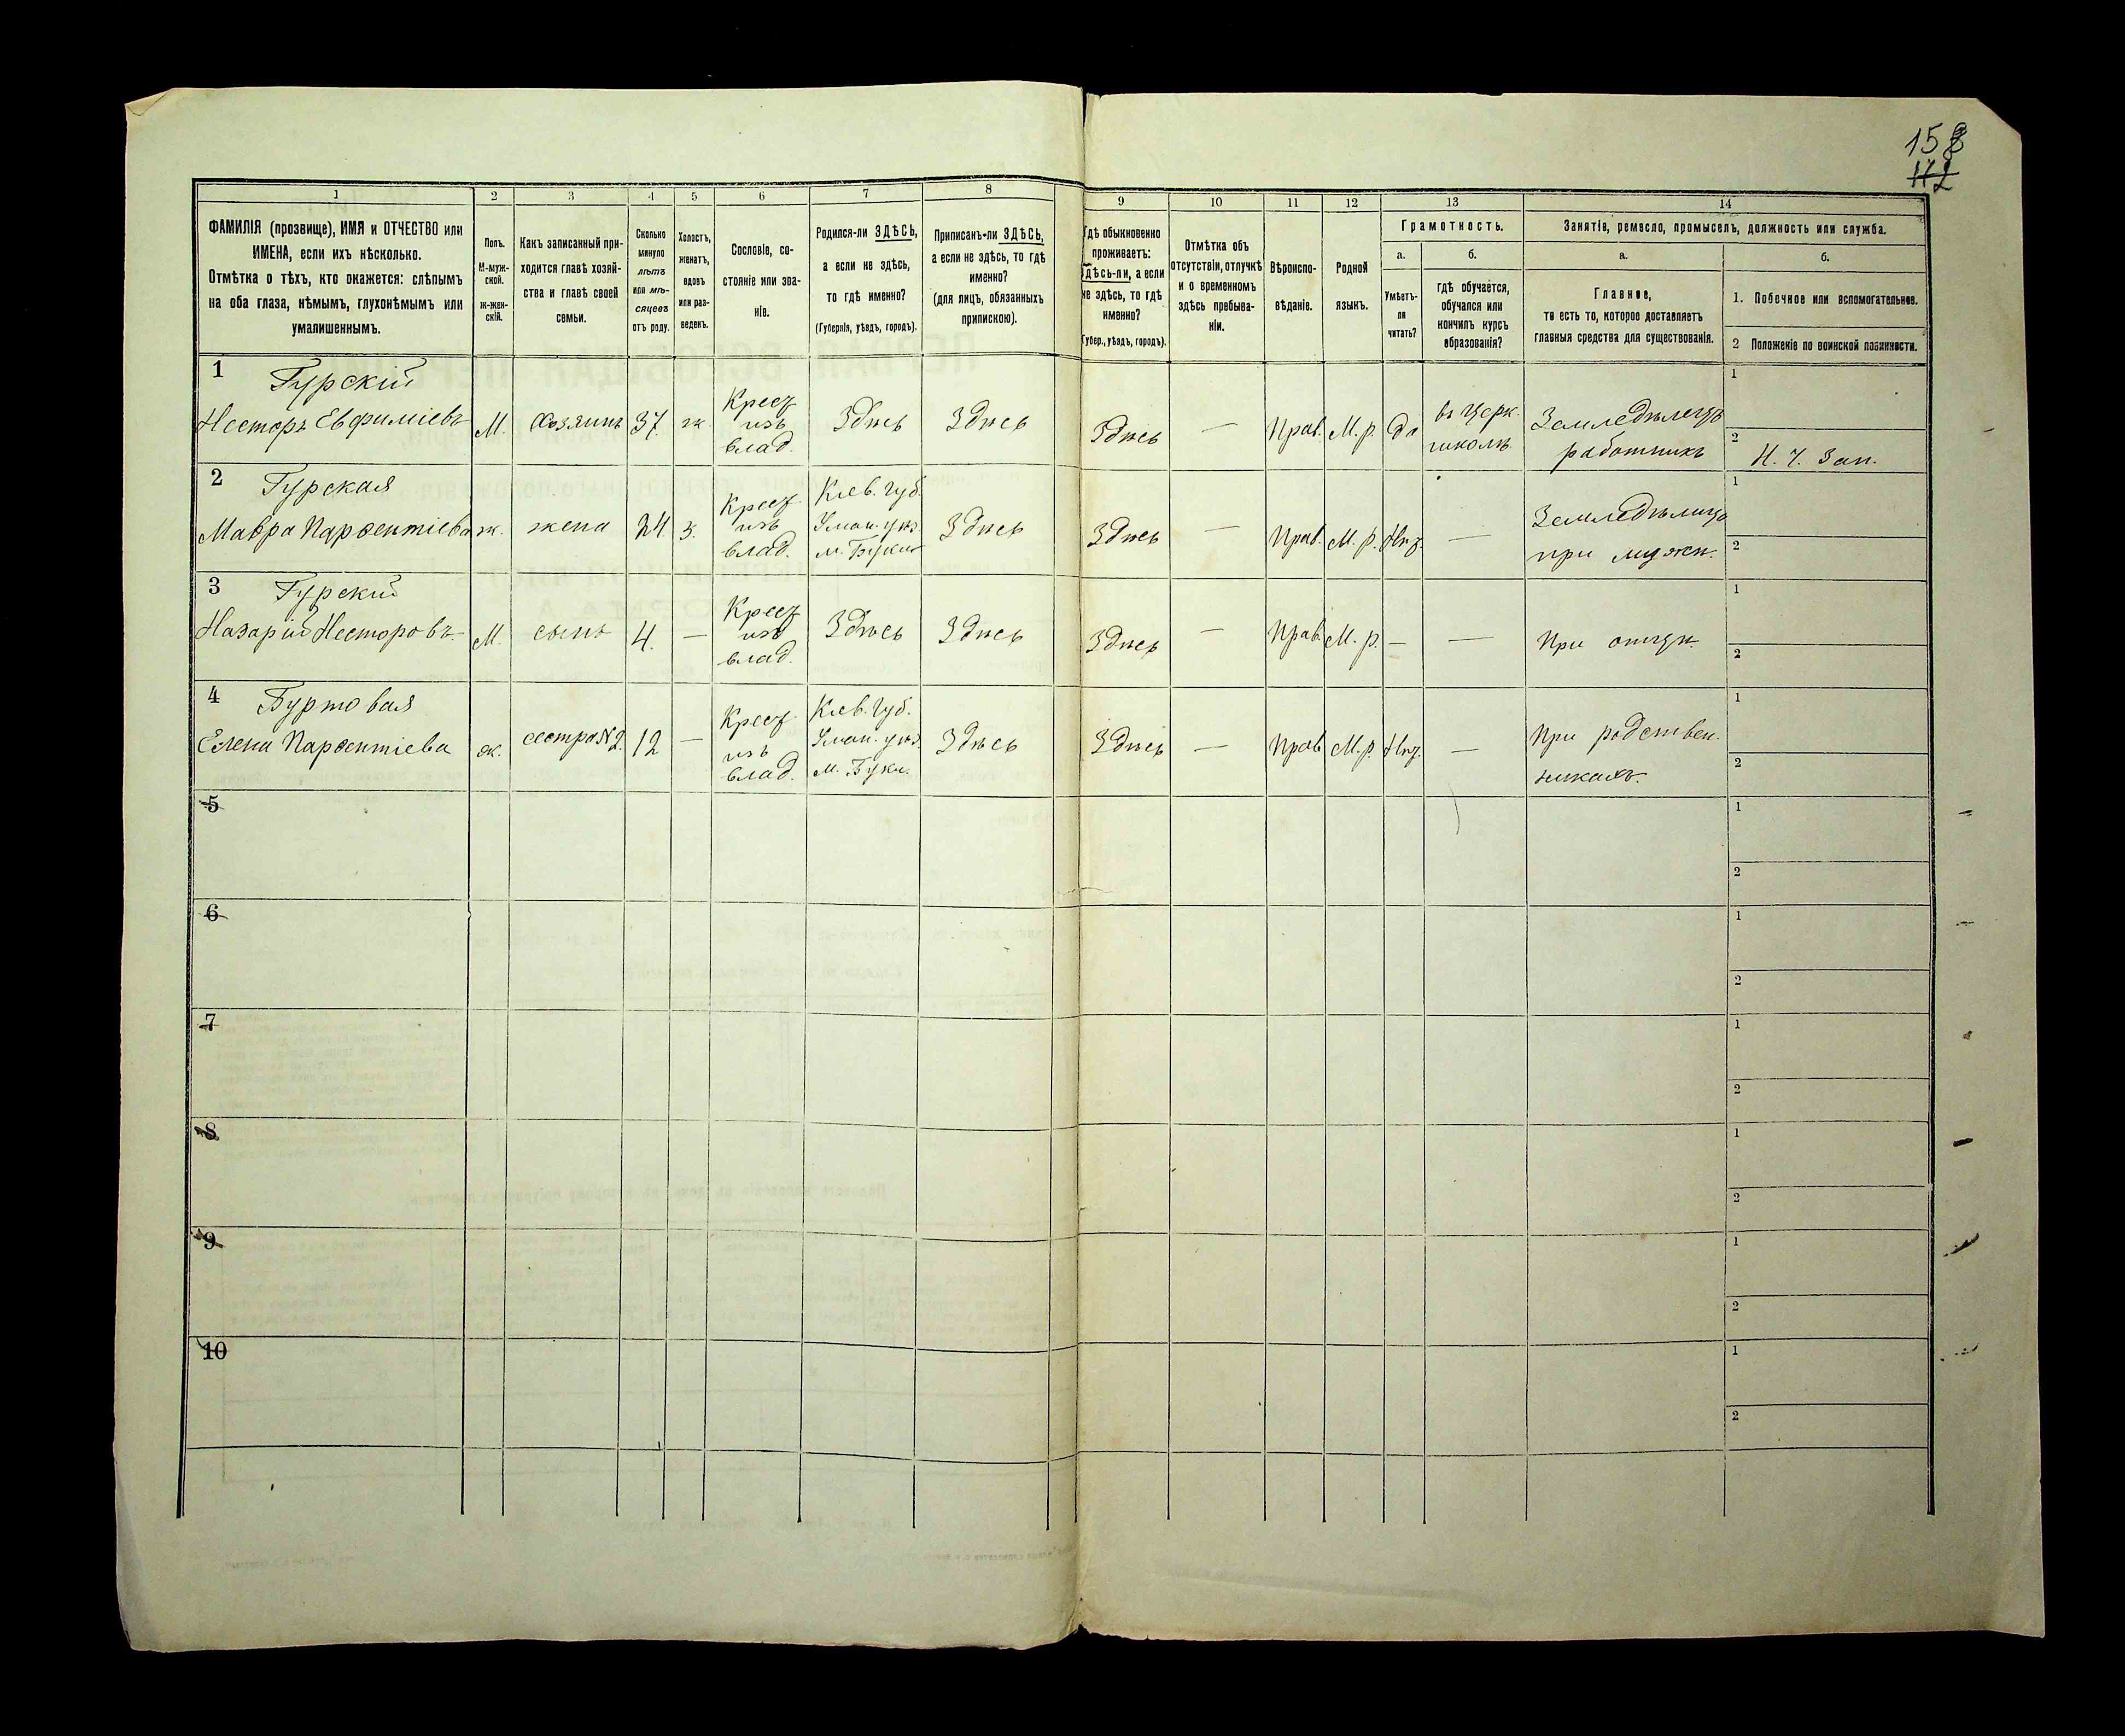 158
112
1
2
3
4
5
6
7
8
9
10
11
12
13
14
ФАМИЛІЯ (прозвище), ИМЯ и ОТЧЕСТВО или
ИМЕНА, если ихъ нѣсколько.
Отмѣтка о тѣхъ, кто окажется: слѣпымъ
на оба глаза, нѣмымъ, глухонѣмымъ или
умалишеннымъ.
Полъ.
М-муж-
ской.
ж-жен-
скій.
Какъ записанный при-
ходится главѣ хозяй-
ства и главѣ своей
семьи.
Сколько
минуло
лѣтъ
или мѣ-
сяцевъ
отъ роду.
Холостъ,
женатъ,
вдовъ
или раз-
веденъ.
Сословіе, со-
стояніе или зва-
ніе.
Родился-ли ЗДѢСЬ,
а если не здѣсь,
то гдѣ именно?
(Губернія, уѣздъ, городъ).
Приписанъ-ли ЗДѢСЬ,
а если не здѣсь, то гдѣ
именно?
(для лицъ, обязанныхъ
припискою).
Гдѣ обыкновенно
проживаетъ:
здѣсь-ли, а если
не здѣсь, то гдѣ
именно?
(Губер., уѣздъ, городъ).
Отмѣтка объ
отсутствіи, отлучкѣ
и о временномъ
здѣсь пребыва-
ніи.
Вѣроиспо-
вѣданіе.
Родной
языкъ.
Грамотность.
а.
Умѣетъ-
ли
читать?
б.
гдѣ обучается,
обучался или
кончилъ курсъ
образованія?
Занятіе, ремесло, промыселъ, должность или служба.
а.
Главное,
то есть то, которое доставляетъ
главныя средства для существованія.
б.
1. Побочное или вспомогательное.
2 Положеніе по воинской повинности.
1
Гурскій
Несторъ Евфиміевъ
М.
Хозяинъ
37.
ж.
Крест.
изъ
влад.
Здѣсь
Здѣсь
Здѣсь
—
Прав.
М. р.
да
въ Церк.
школѣ
Земледѣлецъ
работникъ
1
2
Н. Ч. Зап.
2
Гурская
Мавра Парѳентіева
ж.
жена
24.
з.
Крест.
изъ
влад.
Кіев. губ.
Уман. уѣз.
м. Буки
Здѣсь
Здѣсь
—
Прав.
М. р.
Нѣт.
—
Земледѣлица
при мужѣ.
1
2
3
Гурскій
Назарій Несторовъ
М.
сынъ
4.
—
Крест.
изъ
влад.
Здѣсь
Здѣсь
Здѣсь
—
Прав.
М. р.
—
—
При отцѣ.
1
2
4
Буртовая
Елена Парѳентіева
ж.
сестра №2.
12
—
Крест.
изъ
влад.
Кіев. Губ.
Уман. уѣз.
м. Буки.
Здѣсь
Здѣсь
—
Прав.
М. р.
Нѣт.
—
При родствен-
никахъ.
1
2
5
1
2
6
1
2
7
1
2
8
1
2
9
1
2
10
1
2